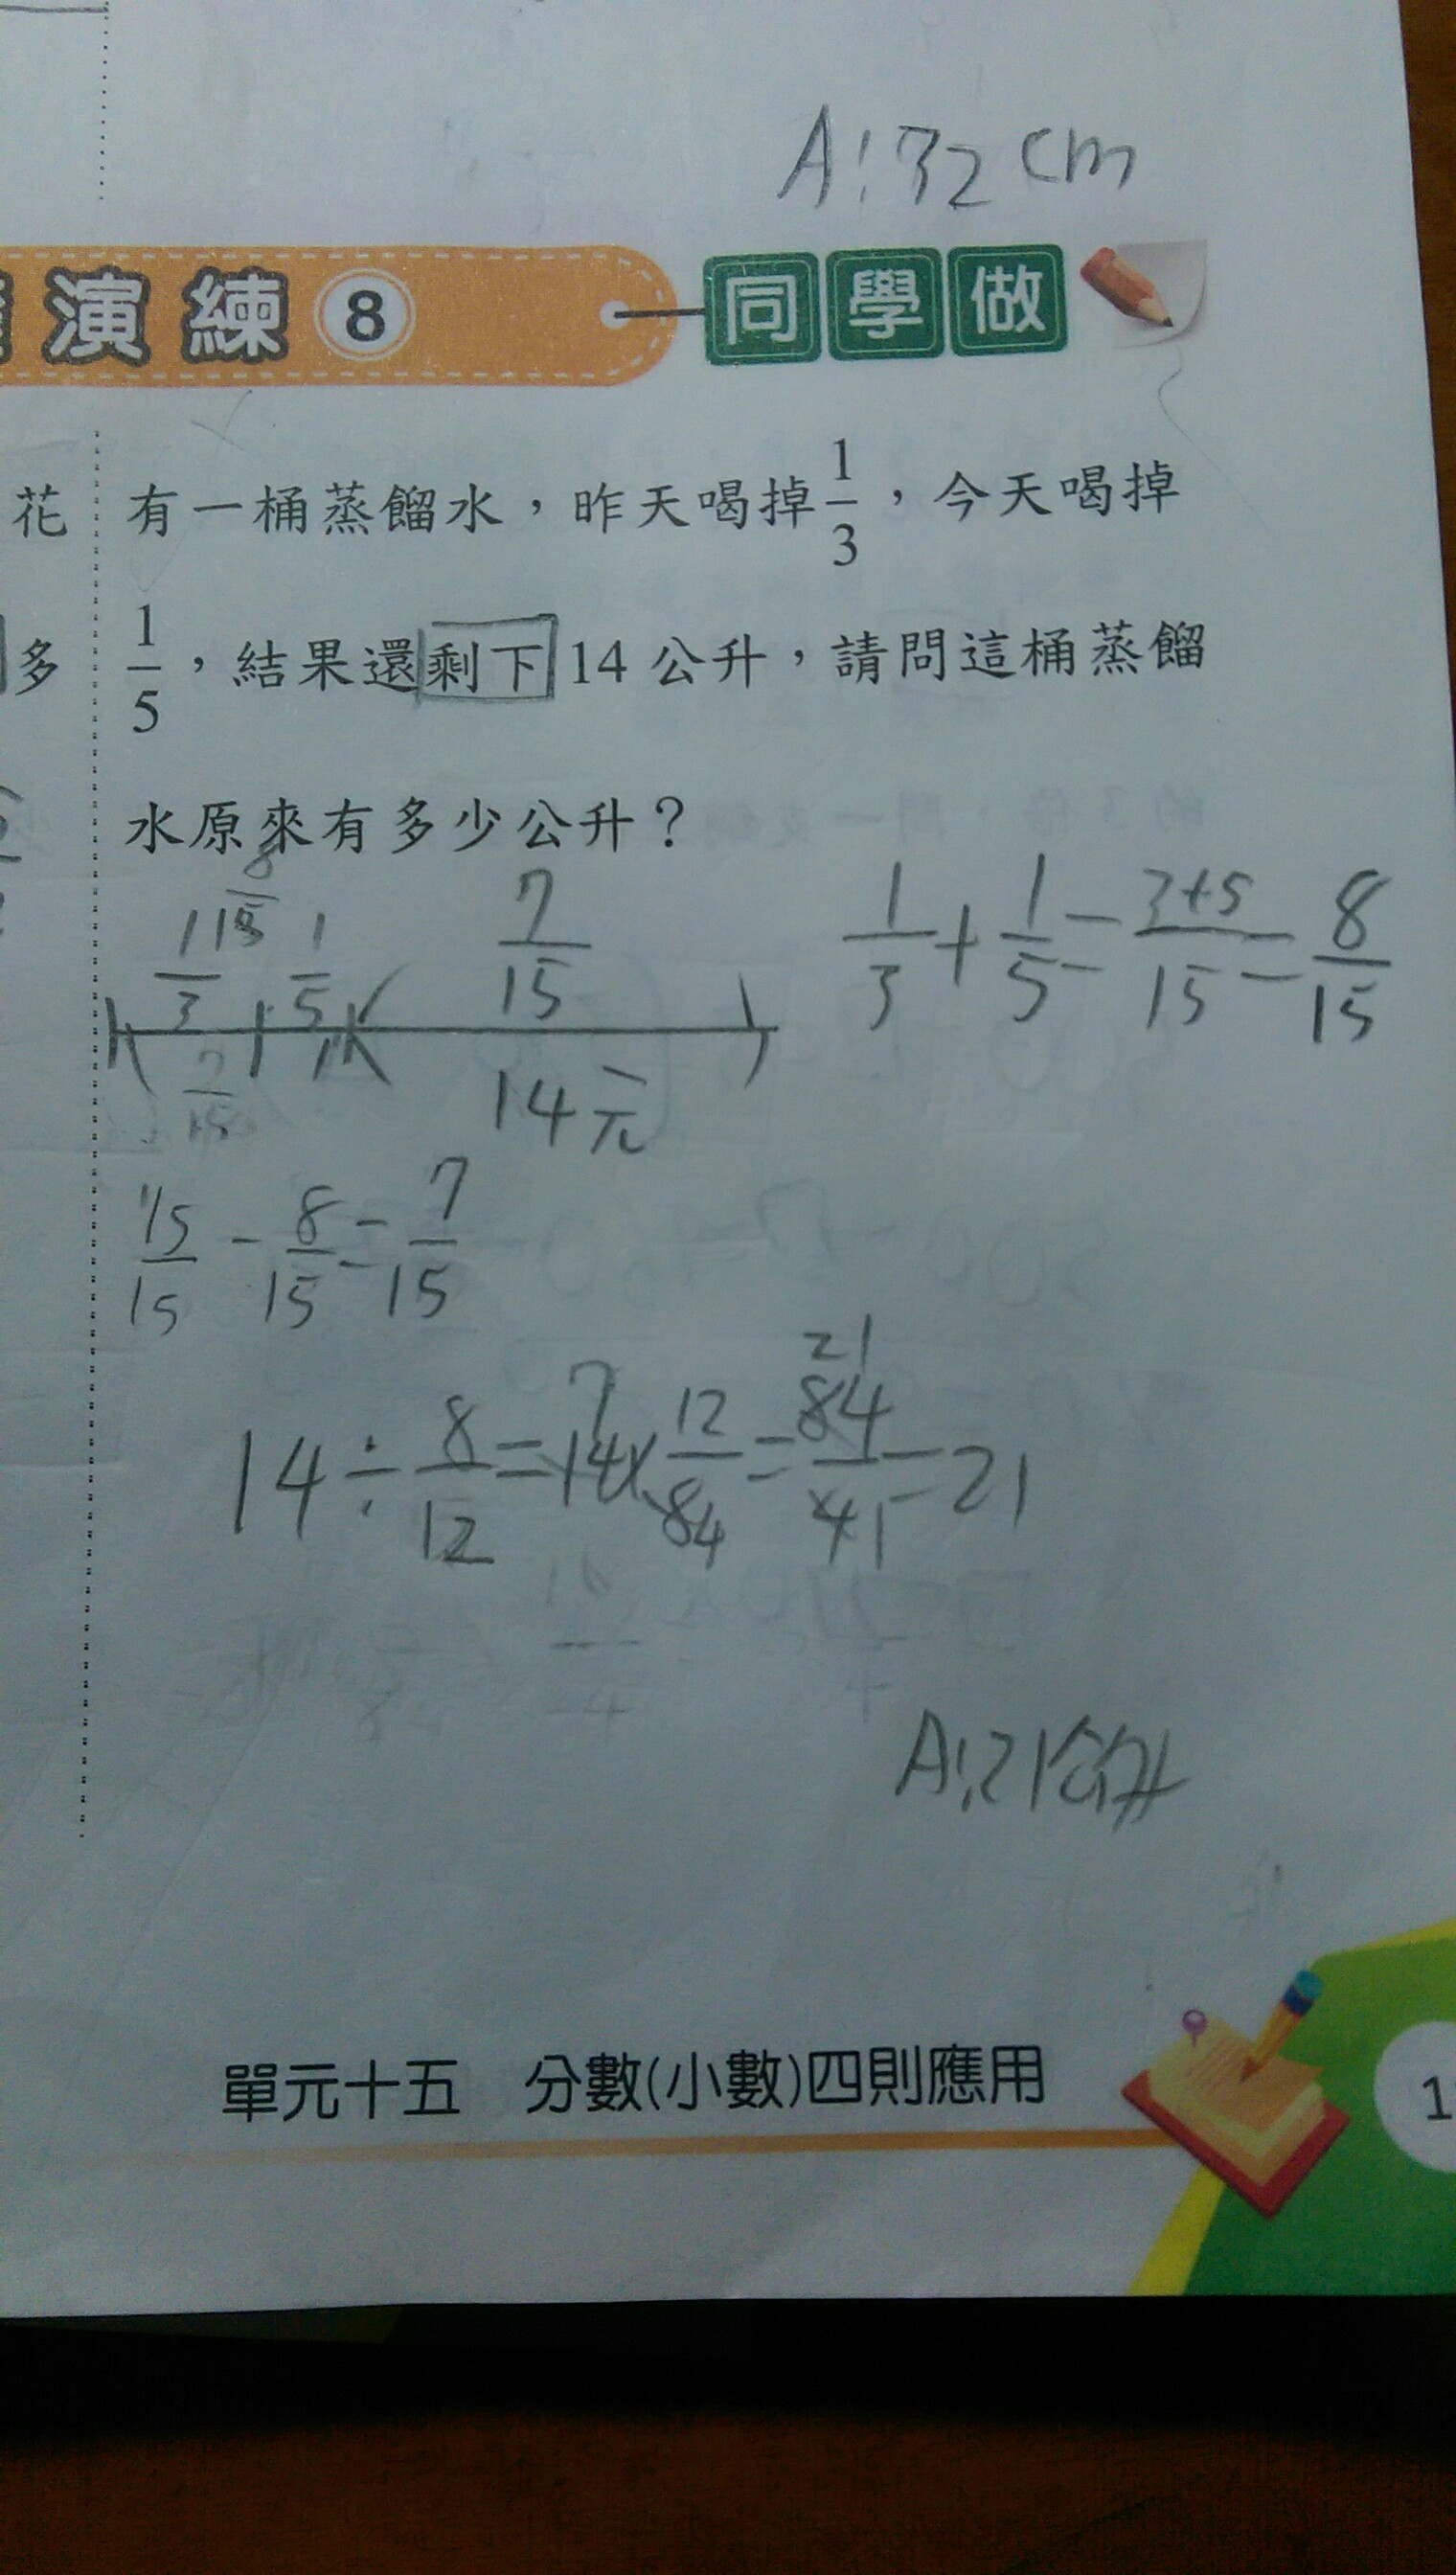 A:32cm
演練8 同學做
花
有一桶蒸餾水，昨天喝掉1/3，今天喝掉
多
1/5，結果還剩下14公升，請問這桶蒸餾
水原來有多少公升？
8/15
1/3 1/5 7/15
1/3+1/5=3+5/15=8/15
7/15
14元
15/15-8/15=7/15
14÷8/12=14 7×12/84=84 21/41=21
A:21公升
單元十五 分數(小數)四則應用
1